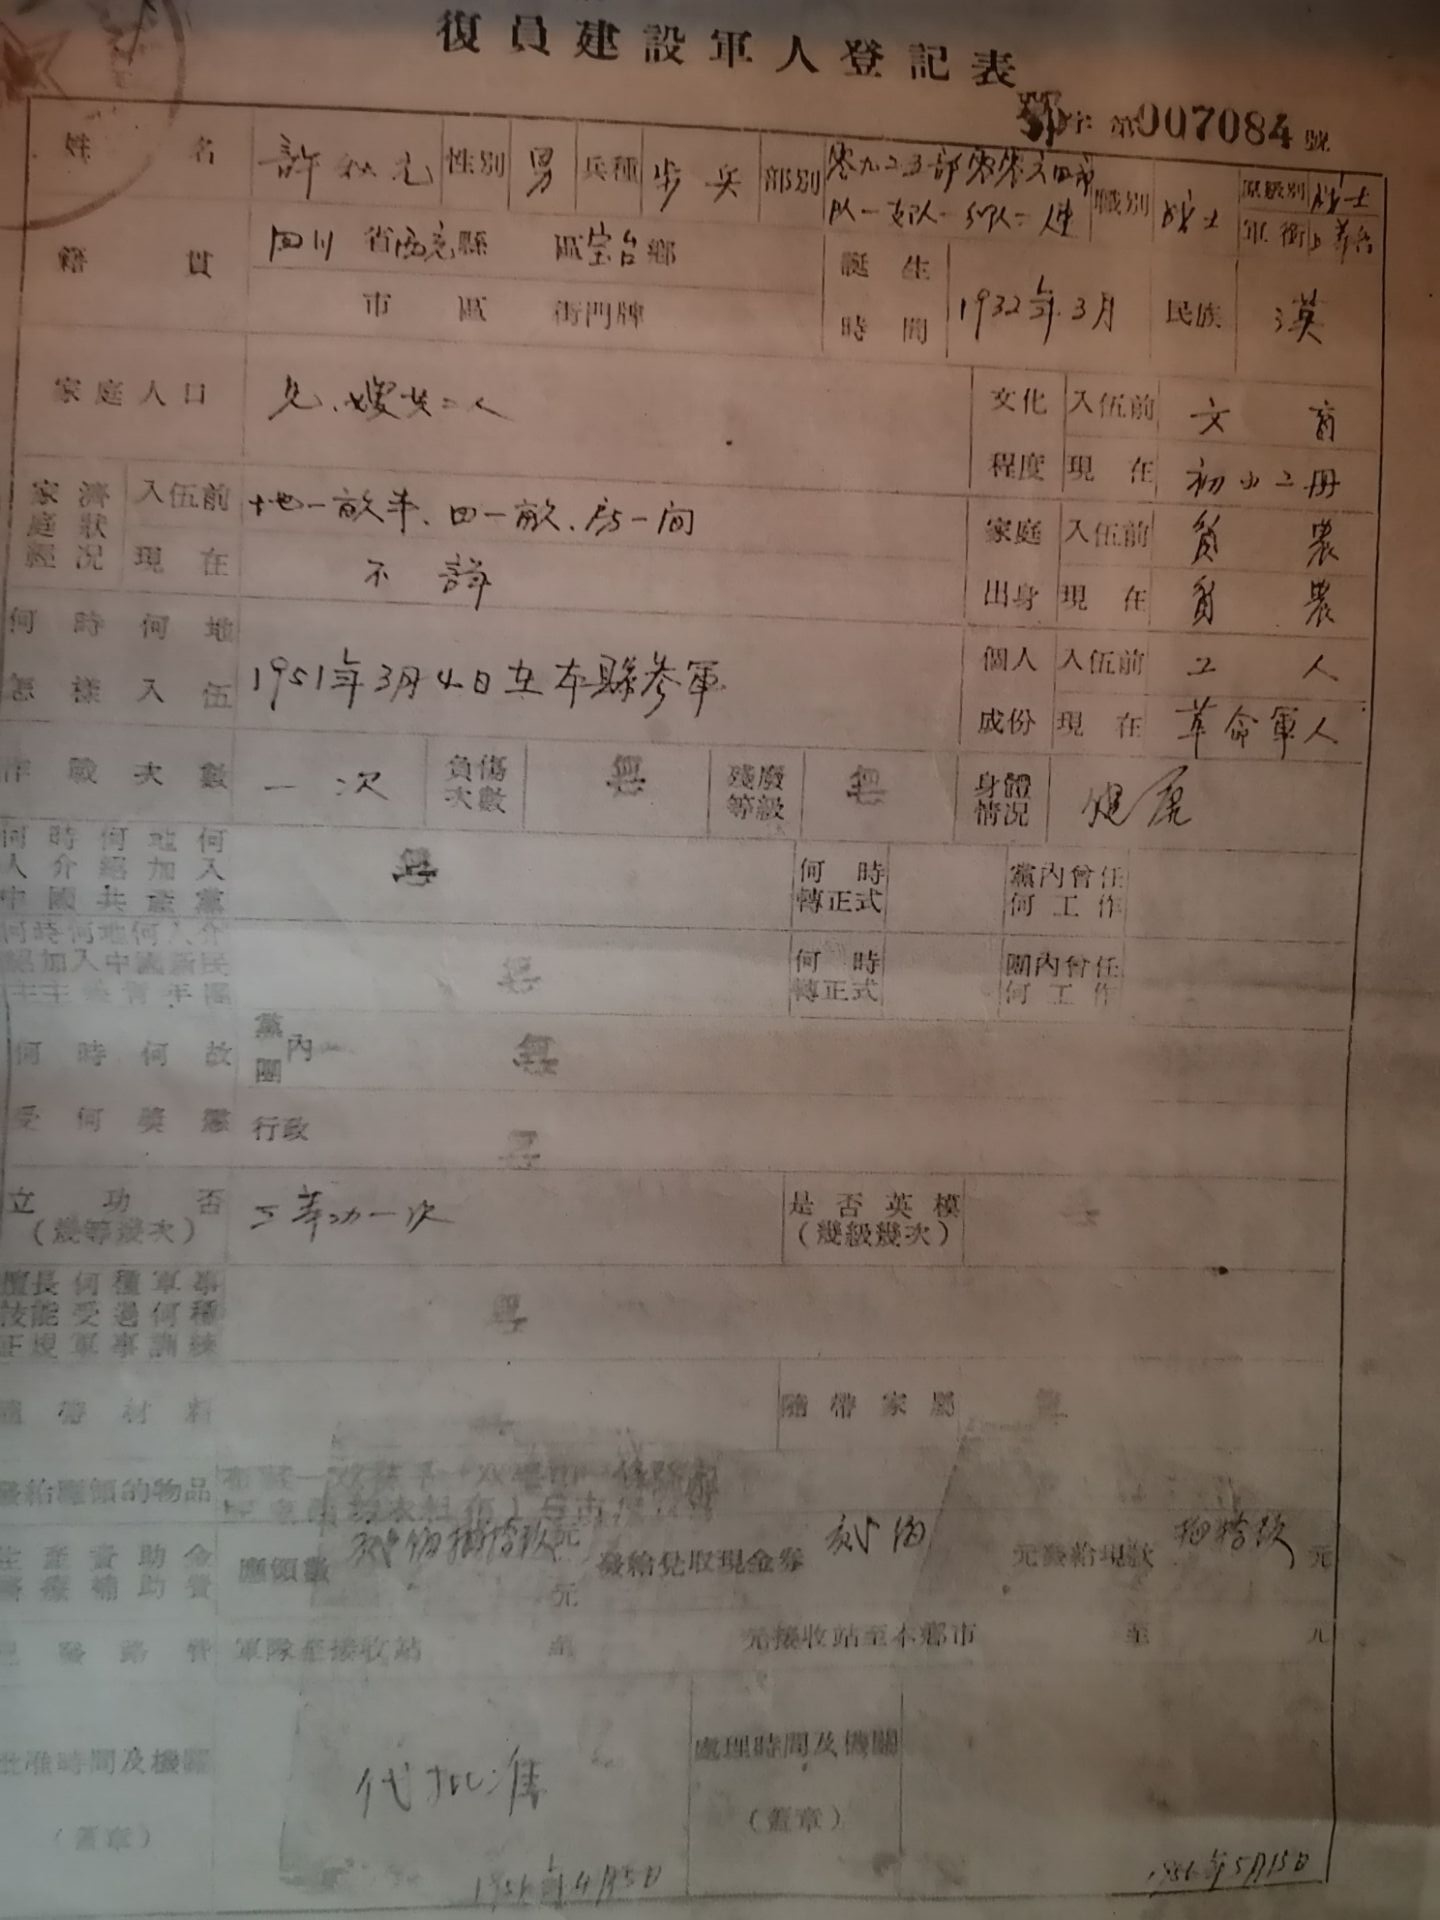 復員建設軍人登記表
鄂字第007084號
姓名 許 元 性別 男 兵種 步兵 部別 零九二三部零零六四部 職別 战士 原級別 战士
队一支队一分队 軍銜 上等兵
籍貫 四川省西充縣 區宝台鄉 誕生時間 1932年3月 民族 漢
市 區 街門牌
家庭人口 兄、嫂共二人 文化程度 入伍前 文盲
現在 初小二册
家庭經濟狀况 入伍前 地一畝半、田一畝、房一间 家庭出身 入伍前 貧農
現在 不詳 現在 貧農
何時何地怎樣入伍 1951年3月4日在本縣参軍 個人成份 入伍前 工人
現在 革命軍人
作戰次數 一次 負傷次數 無 殘廢等級 無 身體情況 健康
何時何地何人介紹加入中國共產黨 無 何時轉正式 黨內曾任何工作
何時何地何人介紹加入中國新民主主義青年團 無 何時轉正式 團內曾任何工作
何時何故受何奬懲 黨團內 無
行政 無
立功否(幾等幾次) 三等功一次 是否英模(幾級幾次)
擅長何種軍事技能受過何種正規軍事訓練 無
隨帶材料 隨帶家屬 無
發給應領的物品
生產資助金 應領數 貳佰捌拾玖元 發給兌取現金券 貳佰 元發給現款 捌拾玖 元
醫療補助費 元
已發路費 軍隊至接收站 至 元接收站至本鄉市 至 元
批准時間及機關(蓋章) 代批准 處理時間及機關(蓋章)
1956年4月5日 1956年5月15日